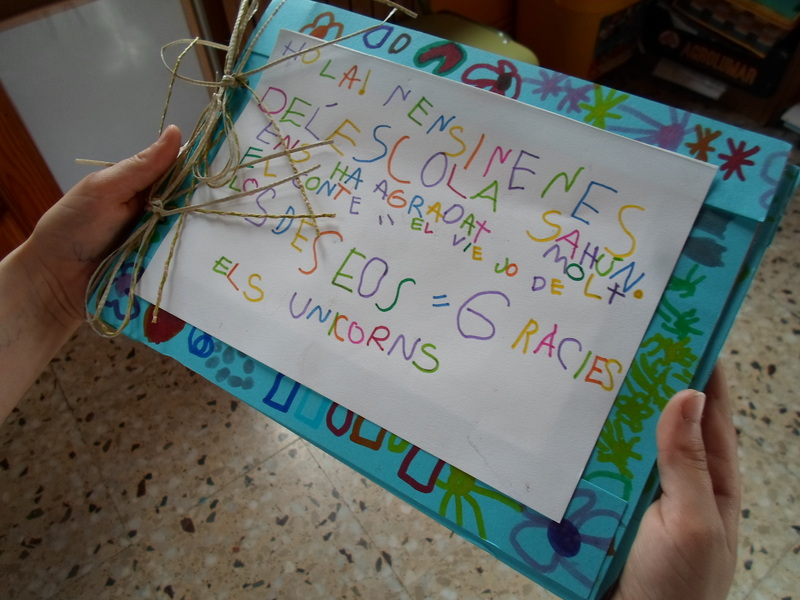 HOLA! NENS I NENES
DE L'ESCOLA SAHÚN.
ENS HA AGRADAT MOLT
EL CONTE "EL VIEJO DE
LOS DESEOS = GRACIES
ELS UNICORNS